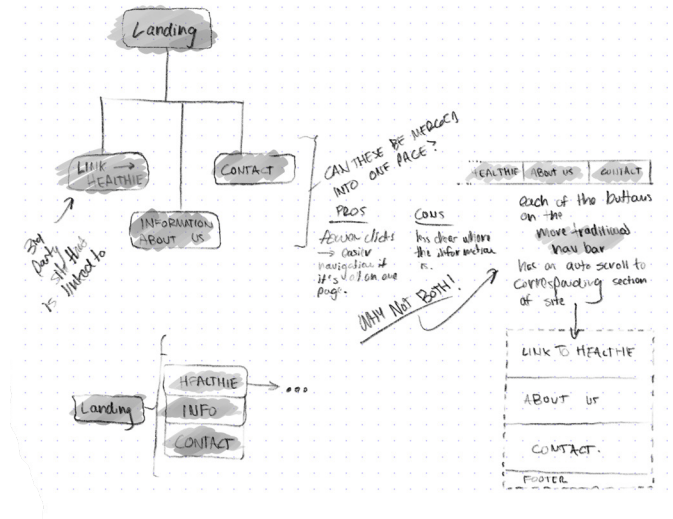 Landing
LINK →
HEALTHIE
CONTACT
INFORMATION
ABOUT US
3rd
party
site that
is linked to
CAN THESE BE MERGED
INTO ONE PAGE?
PROS
fewer clicks
→ easier
navigation if
it's all on one
page.
CONS
less clear where
the information
is.
WHY NOT BOTH!
HEALTHIE
ABOUT US
CONTACT
each of the buttons
on the
more traditional
nav bar
has an auto scroll to
corresponding section
of site
LINK TO HEALTHIE
ABOUT US
CONTACT.
FOOTER
Landing
HEALTHIE → ...
INFO
CONTACT